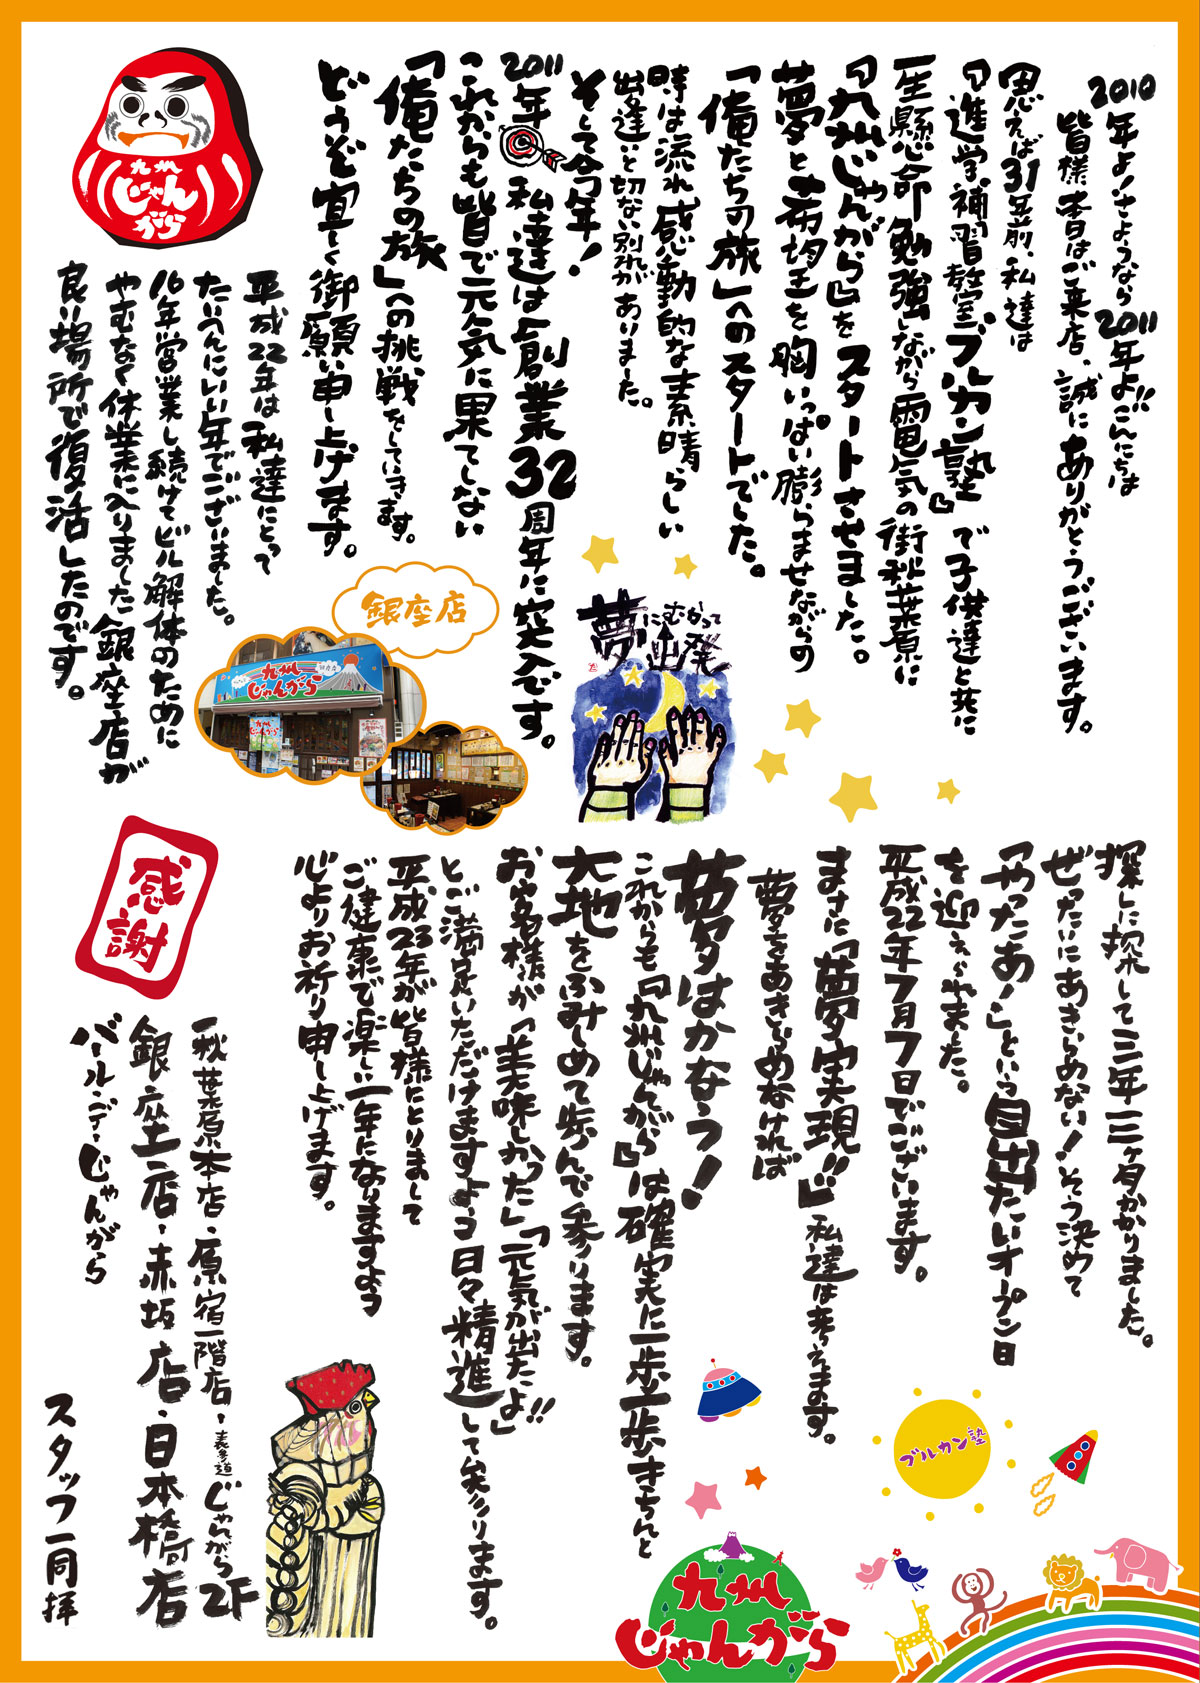 2010年よ!さようなら 2011年よ!!こんにちは
皆様、本日はご来店、誠にありがとうございます。
思えば31年前、私達は
『進学補習教室ブルカン塾』で子供達と共に
一生懸命勉強しながら電気の街秋葉原に
『九州じゃんがら』をスタートさせました。
夢と希望を胸いっぱい膨らませながらの
「俺たちの旅」へのスタートでした。
時は流れ感動的な素晴らしい
出逢いと切ない別れがありました。
そして今年!
2011年 私達は創業32周年に突入です。
これからも皆で元気に果てしない
「俺たちの旅」への挑戦をしていきます。
どうぞ宜しく御願い申し上げます。
九州
じゃん
がら
平成22年は私達にとって
たいへんにいい年でございました。
16年営業し続けてビル解体のために
やむなく休業に入りました銀座店が
良い場所で復活したのです。
銀座店
九州
じゃんがら
夢にむかって
出発
探しに探して三年三ヶ月かかりました。
ぜったいにあきらめない!そう決めて
「やったあ!」という目出たいオープン日
を迎えられました。
平成22年7月7日でございます。
まさに「夢実現!!」私達は考えます。
夢をあきらめなければ
夢はかなう!
これからも『九州じゃんがら』は確実に一歩一歩きちんと
大地をふみしめて歩んで参ります。
お客様が「美味しかった」「元気が出たよ!!」
とご満足いただけますよう日々精進して参ります。
平成23年が皆様にとりまして
ご健康で楽しい一年になりますよう
心よりお祈り申し上げます。
感謝
秋葉原本店・原宿一階店・表参道じゃんがら2F
銀座店・赤坂店・日本橋店
バール・デ・じゃんがら
スタッフ一同 拝
ブルカン塾
九州
じゃんがら